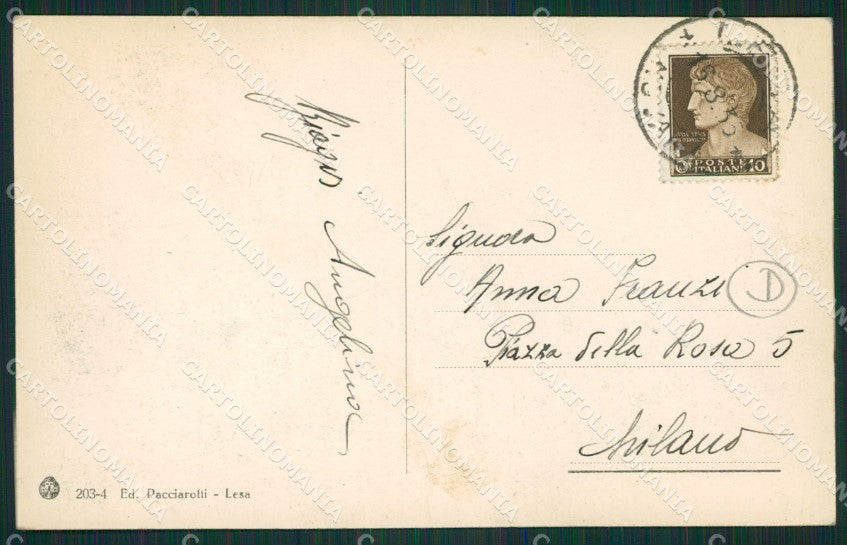 Angelina
Signora
Anna Franzi
Piazza della Rosa 5
Milano
D
POSTE
ITALIANE 10
203-4 Ed. Pacciarotti - Lesa
CARTOLINOMANIA